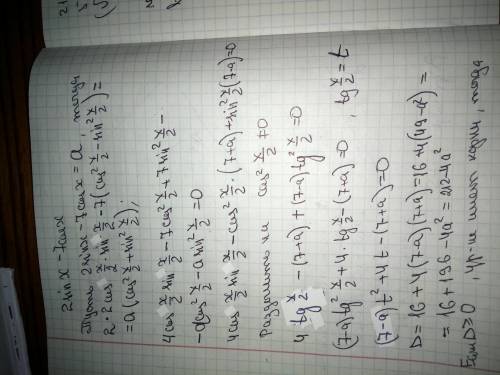 2 sin x - 7cos x
Пусть 2 sin x - 7cos x = a, тогда
2·2cos x/2 · sin x/2 - 7(cos² x/2 - sin² x/2) =
= a(cos² x/2 + sin² x/2);
4cos x/2 sin x/2 - 7cos² x/2 + 7 sin² x/2 -
- a cos² x/2 - a sin² x/2 = 0
4cos x/2 sin x/2 - cos² x/2 · (7+a) + sin² x/2 (7-a) = 0
Разделить на cos² x/2 ≠ 0
4 tg x/2 - (7+a) + (7-a) tg² x/2 = 0
(7-a) tg² x/2 + 4 · tg x/2 - (7+a) = 0 , tg x/2 = t
(7-a) t² + 4t - (7+a) = 0
D = 16 + 4(7-a)(7+a) = 16 + 4(49-a²) =
= 16 + 196 - 4a² = 212 - 4a²
Если D ≥ 0 , ур-ие имеет корни , тогда